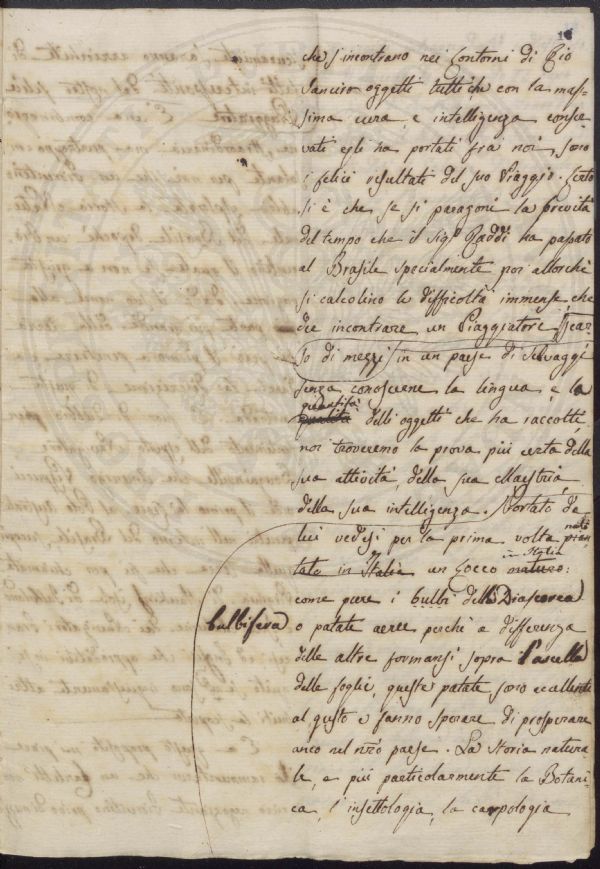 che s'incontrano nei Contorni di Rio
Janeiro oggetti tutti che con la mas-
sima cura, e intelligenza conser-
vati egli ha portati fra noi, sono
i felici resultati del suo Viaggio. Certo
si è che se si paragoni la brevità
del tempo che il Sigr Raddi ha passato
al Brasile specialmente poi allorchè
si calcolino le difficoltà immense, che
dee incontrare un Viaggiatore scar-
so di mezzi in un paese di selvaggi
senza conoscere la lingua, e la
quantità
qualità delli oggetti che ha raccolti,
noi troveremo la prova più certa della
sua attività, della sua Maestria
della sua intelligenza. Portato da
lui vedesi per la prima volta pian-
nato
in Italia
tato in Italia un Cocco naturo:
come pure i bulbi della Dioscorea
bulbifera
o patate aeree perchè a differenza
delle altre formansi sopra l'ascella
delle foglie, queste patate sono eccellenti
al gusto e fanno sperare di prosperare
anco nel nrõ paese. La storia natura-
le, e più particolarmente la Botani-
ca, l'insettologia, la carpologia